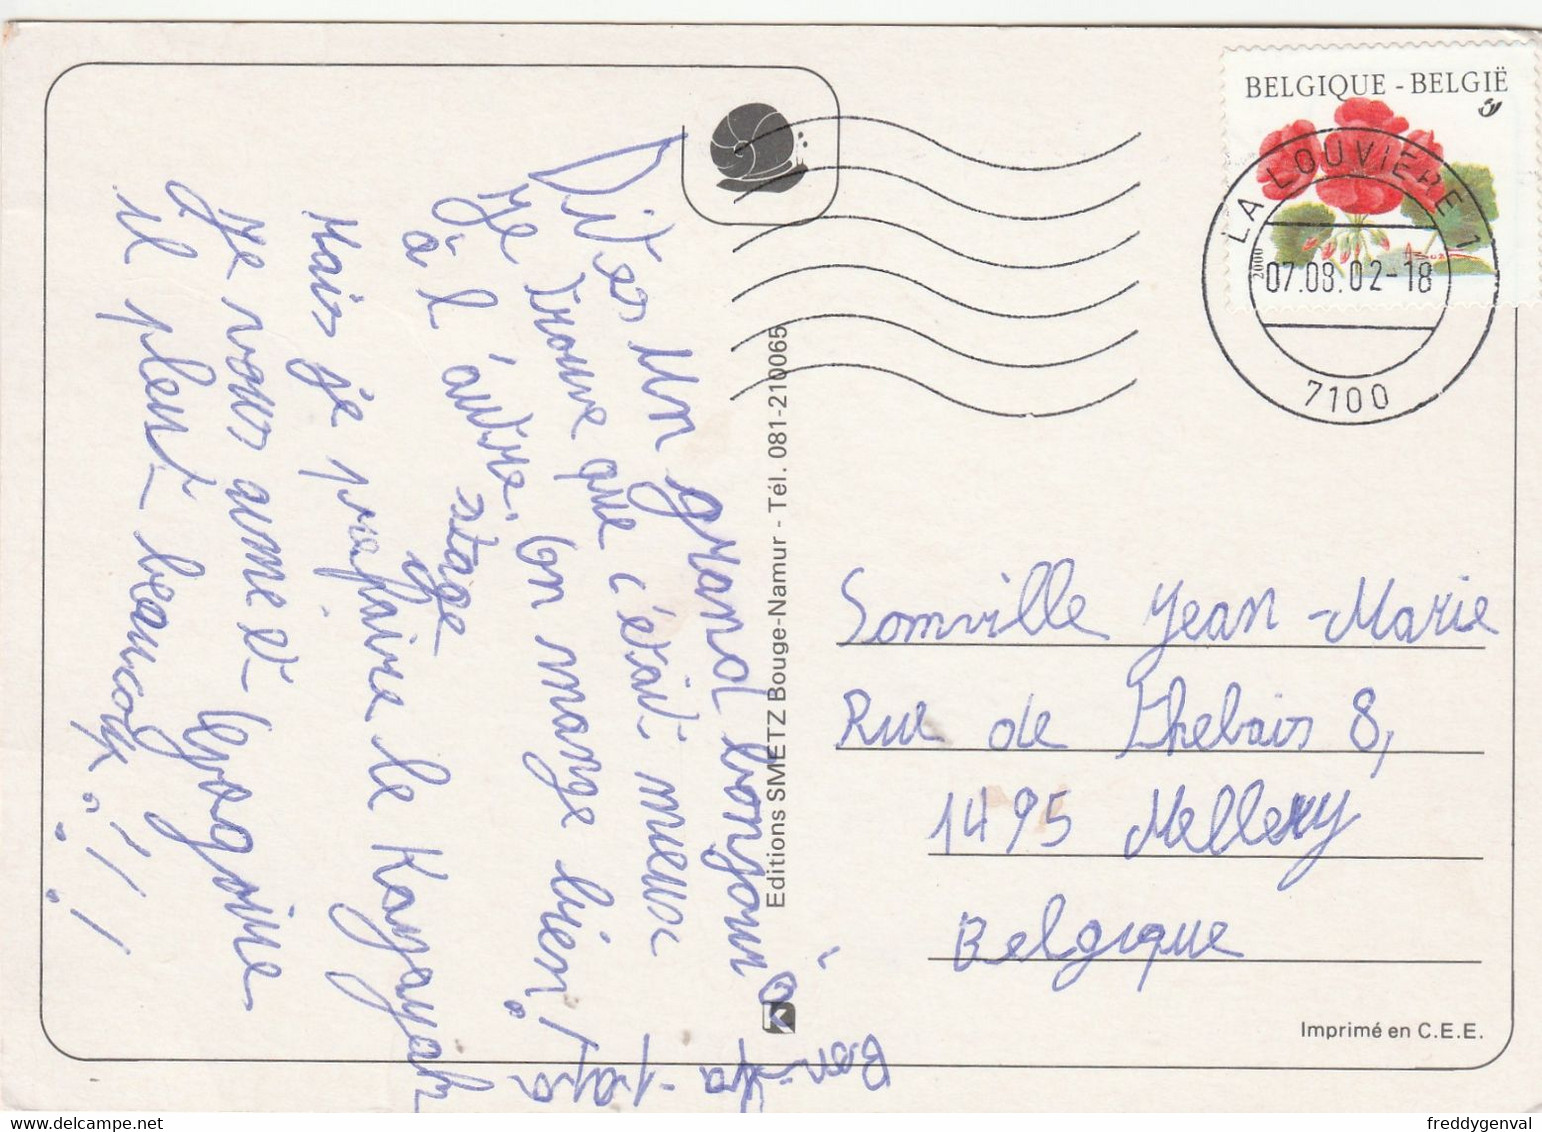 BELGIQUE - BELGIË
2000
LA LOUVIERE 1
07.08.02-18
7100
Dites un grand bonjour à
Bon-pa
-papa
Je trouve que c'était mieux
à l'autre stage
On mange bien!
Mais je préfaire le Kayayak
Je vous aime et
il pleut beaucoup !!!
Editions SMETZ Bouge-Namur - Tél. 081-210065
K
Somville Jean-Marie
Rue de Thebais 8,
1495 Mellery
Belgique
Imprimé en C.E.E.
freddygenval